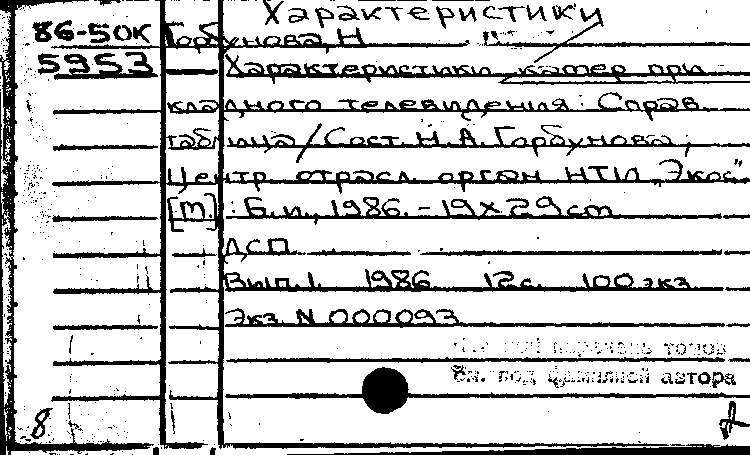 Характеристики
86-50К Горбунова, Н
5953 — Характеристики камер при-
кладного телевидения: Справ.
таблица / Сост. Н. А. Горбунова;
Центр. отрасл. орган НТИ „Экос"
[М.]: Б. и., 1986. - 19×29 cm
ДСП
Вып. 1. 1986. 12 с. 100 экз
Экз. N 000093
перечень томов
См. под фамилией автора
8